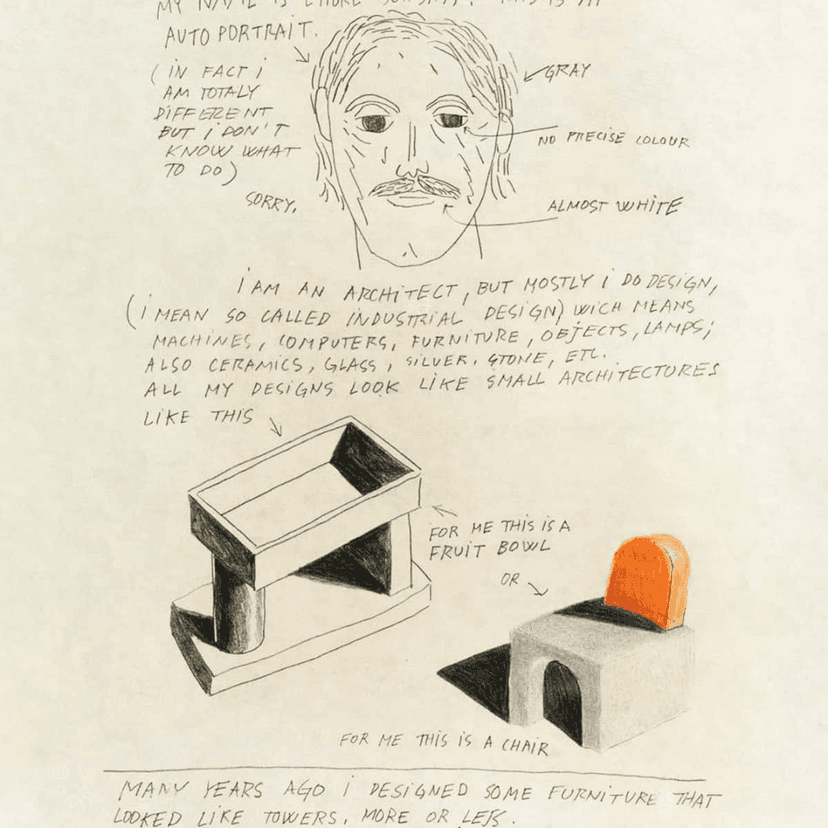 MY NAME IS
AUTO PORTRAIT.
(IN FACT i
AM TOTALY
DIFFERENT
BUT i DON'T
KNOW WHAT
TO DO)
SORRY.
GRAY
NO PRECISE COLOUR
ALMOST WHITE
i AM AN ARCHiTECT, BUT MOSTLY i DO DESIGN,
(i MEAN SO CALLED INDUSTRIAL DESIGN) WICH MEANS
MACHINES, COMPUTERS, FURNITURE, OBJECTS, LAMPS;
ALSO CERAMICS, GLASS, SILVER, STONE, ETC.
ALL MY DESIGNS LOOK LIKE SMALL ARCHITECTURES
LIKE THIS
FOR ME THIS IS A
FRUIT BOWL
OR
FOR ME THIS IS A CHAIR
MANY YEARS AGO i DESIGNED SOME FURNITURE THAT
LOOKED LIKE TOWERS, MORE OR LESS.